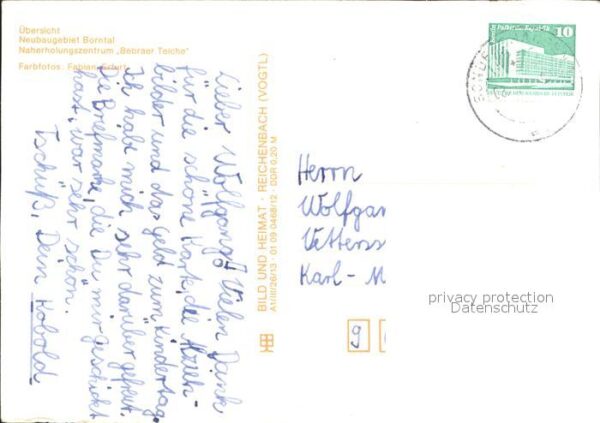 Übersicht
Neubaugebiet Borntal
Naherholungszentrum „Bebraer Teiche“
Farbfotos: Fabian, Erfurt
Lieber Wolfgang! Vielen Dank
für die schöne Karte, die
bilder und das Geld zum Kindertag.
Ich habe mich sehr darüber gefreut.
Die Briefmarke, die Du mir geschickt
hast, war sehr schön.
Tschüß, Dein Kobold
BILD UND HEIMAT · REICHENBACH (VOGTL)
A1/III/26/13 · 01 09 0468/12 · DDR 0,20 M
10
Herrn
Wolfgan
Karl-M
privacy protection
Datenschutz
9